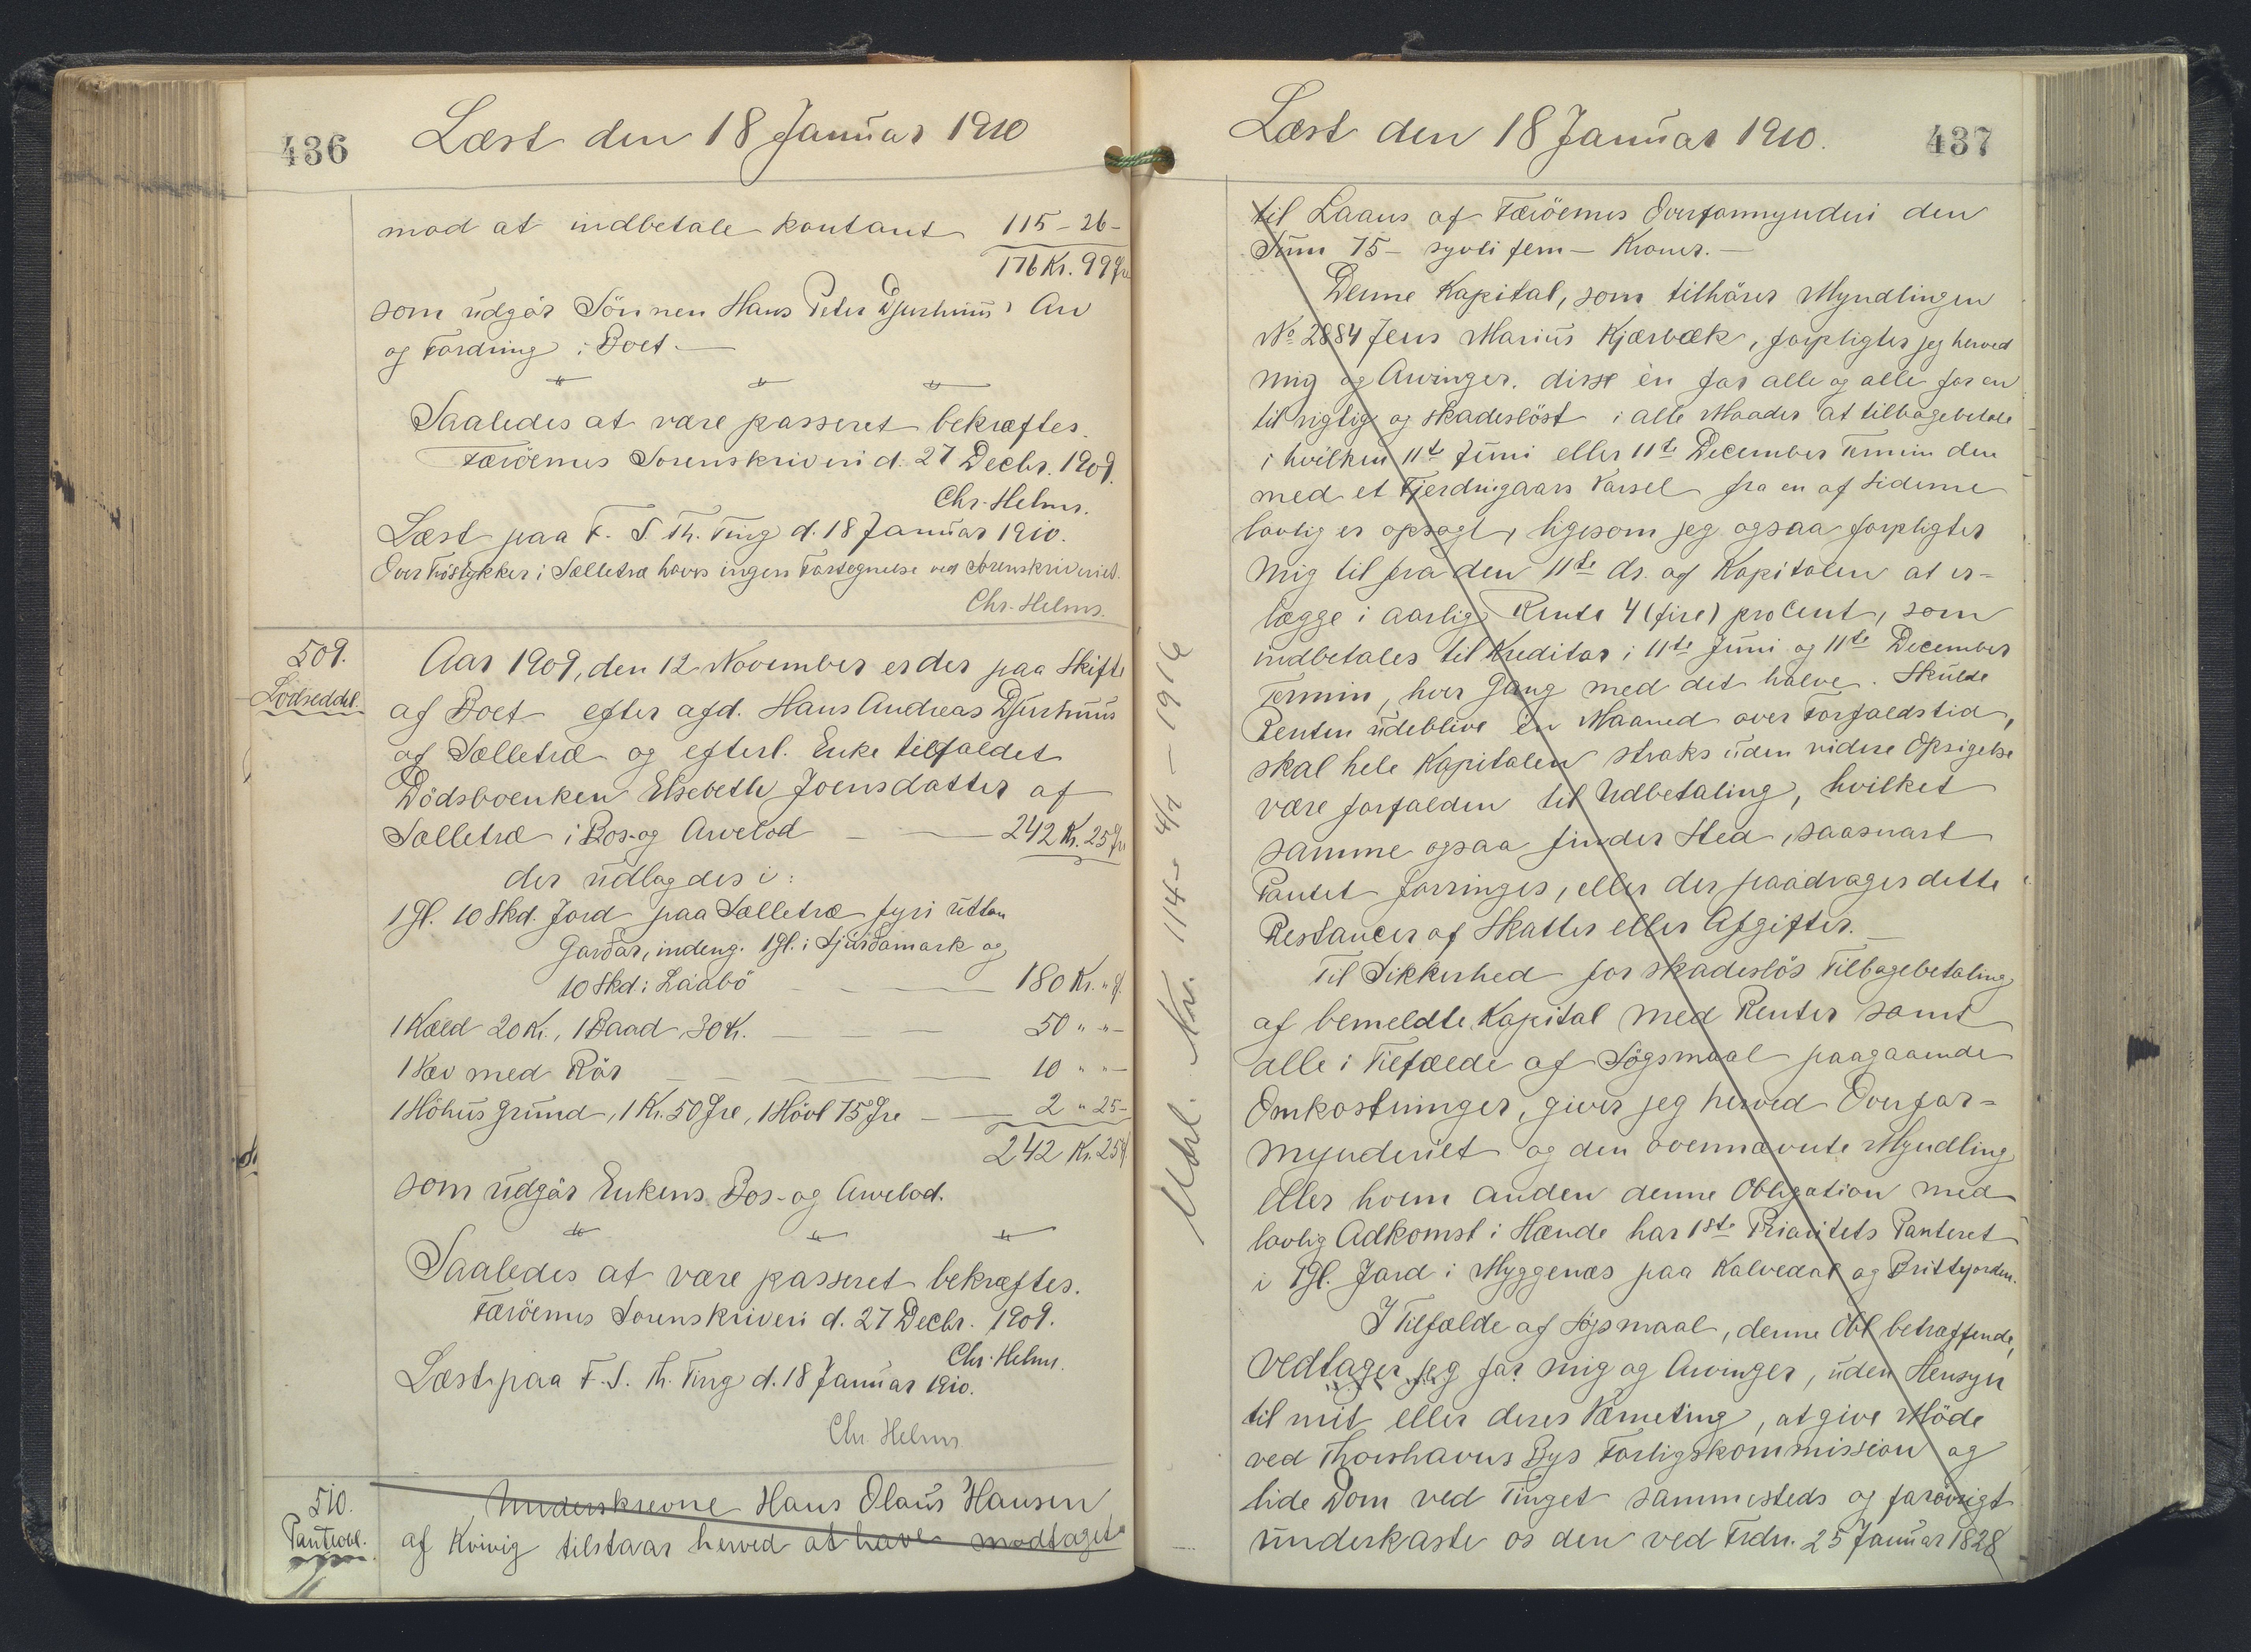 436
Læst den 18 Januar 1910
mod at indbetale kontant 115 - 26 -
176 Kr. 99 Øre
som udgør Sønnen Hans Peter Djurhuus' Arv
og Fordring i Boet. —
Saaledes at være passeret bekræftes.
Færöernes Sorenskriveri d. 27 Decbr. 1909.
Chr. Helms.
Læst paa F. S. Th. Ting d. 18 Januar 1910.
Over Træstykker i Sælletræ haves ingen Fortegnelse ved Sorenskriveriet.
Chr. Helms.
509.
Lodseddel.
Aar 1909, den 12 November er der paa Skifte
af Boet efter afd. Hans Andreas Djurhuus
af Sælletræ og efterl. Enke tilfaldet
Dödsboenken Elsebeth Joensdatter af
Sælletræ i Bos- og Arvelod — 242 Kr. 25 Øre
der udlagdes i:
1 Gl. 10 Skd. Jord paa Sælletræ fyri uttan
Gardar, indeng. 1 Gl. i Fjardamark og
10 Skd i Láabö — 180 Kr. " Ø.
1 Kæld 20 Kr., 1 Baad 30 Kr. — 50 " " -
1 Væv med Rör — 10 " " -
1 Höhus Grund, 1 Kr. 50 Øre, 1 Hövl 75 Øre — 2 " 25 -
242 Kr. 25 Ø
som udgør Enkens Bos- og Arvelod.
Saaledes at være passeret bekræftes.
Færöernes Sorenskriveri d. 27 Decbr. 1909.
Chr. Helms.
Læst paa F. S. Th. Ting d. 18 Januar 1910.
Chr Helms
510.
Panteobl.
Underskrevne Hans Olaus Hansen
af Kvivig tilstaar herved at have modtaget
437
Læst den 18 Januar 1910.
til Laans af Færöernes Overformynderi den
Sum 75 - syvti fem - Kroner. —
Denne Kapital, som tilhörer Myndlingen
No 2884 Jens Marius Kjærbæk, forpligter jeg herved
mig og Arvinger, disse èn for alle og alle for en
til rigtig og skadeslöst i alle Maader at tilbagebetale
i hvilken 11te Juni eller 11te December Termin den
med et Fjerdingaars Varsel fra en af Siderne
lovlig er opsagt, ligesom jeg ogsaa forpligter
mig til fra den 11te ds. af Kapitalen at er-
lægge i aarlig Rente 4 (fire) pro Cent, som
indbetales til Kreditor i 11te Juni og 11te December
Termin, hver Gang med det halve. Skulde
Renten udeblive èn Maaned over Forfaldstid,
skal hele Kapitalen straks uden videre Opsigelse
være forfalden til Udbetaling, hvilket
samme ogsaa finder Sted, saasnart
Pantet forringes, eller der paadrages dette
Restancer af Skatter eller Afgifter. —
Til Sikkerhed for skadeslös Tilbagebetaling
af bemeldte Kapital med Renter samt
alle i Tilfælde af Sögsmaal paagaaende
Omkostninger, giver jeg herved Overfor-
mynderiet og den ovennævnte Myndling
eller hvem anden denne Obligation med
lovlig Adkomst i Hænde har 1ste Prioritets Panteret
i 1 Gl. Jord i Myggenæs paa Kalvedal og Brittejorden.
I Tilfælde af Sögsmaal, denne Obl betræffende,
vedtager jeg for mig og Arvinger, uden Hensyn
til mit eller deres Værneting, at give Möde
ved Thorshavns Bys Forligskommission og
lide Dom ved Tinget sammesteds og forövrigt
underkaste os den ved Frdn. 25 Januar 1828
Udsl. Nr. 114 - 4/7 - 1916